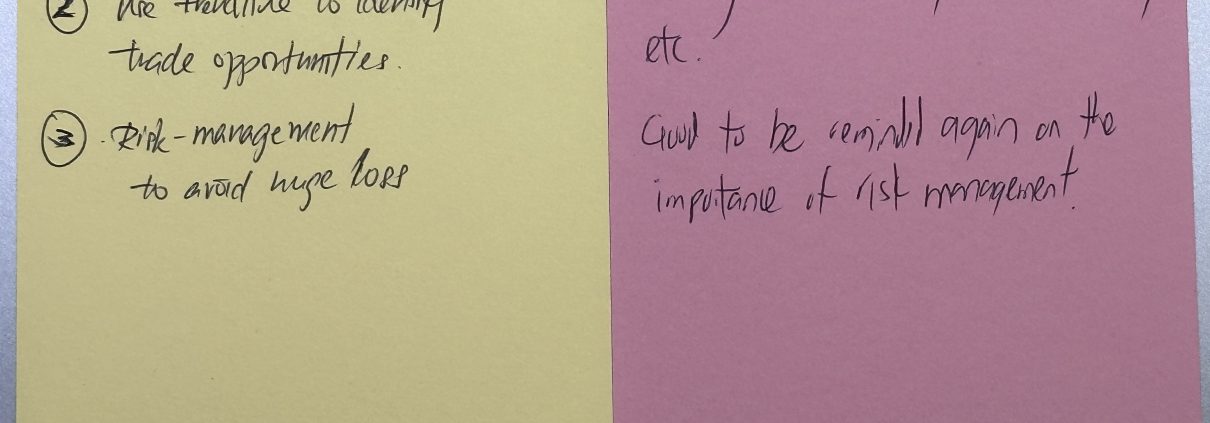 ② Use trendline to identify
trade opportunities.
③ . Risk-management
to avoid huge loss
etc.
Good to be reminded again on the
importance of risk management.